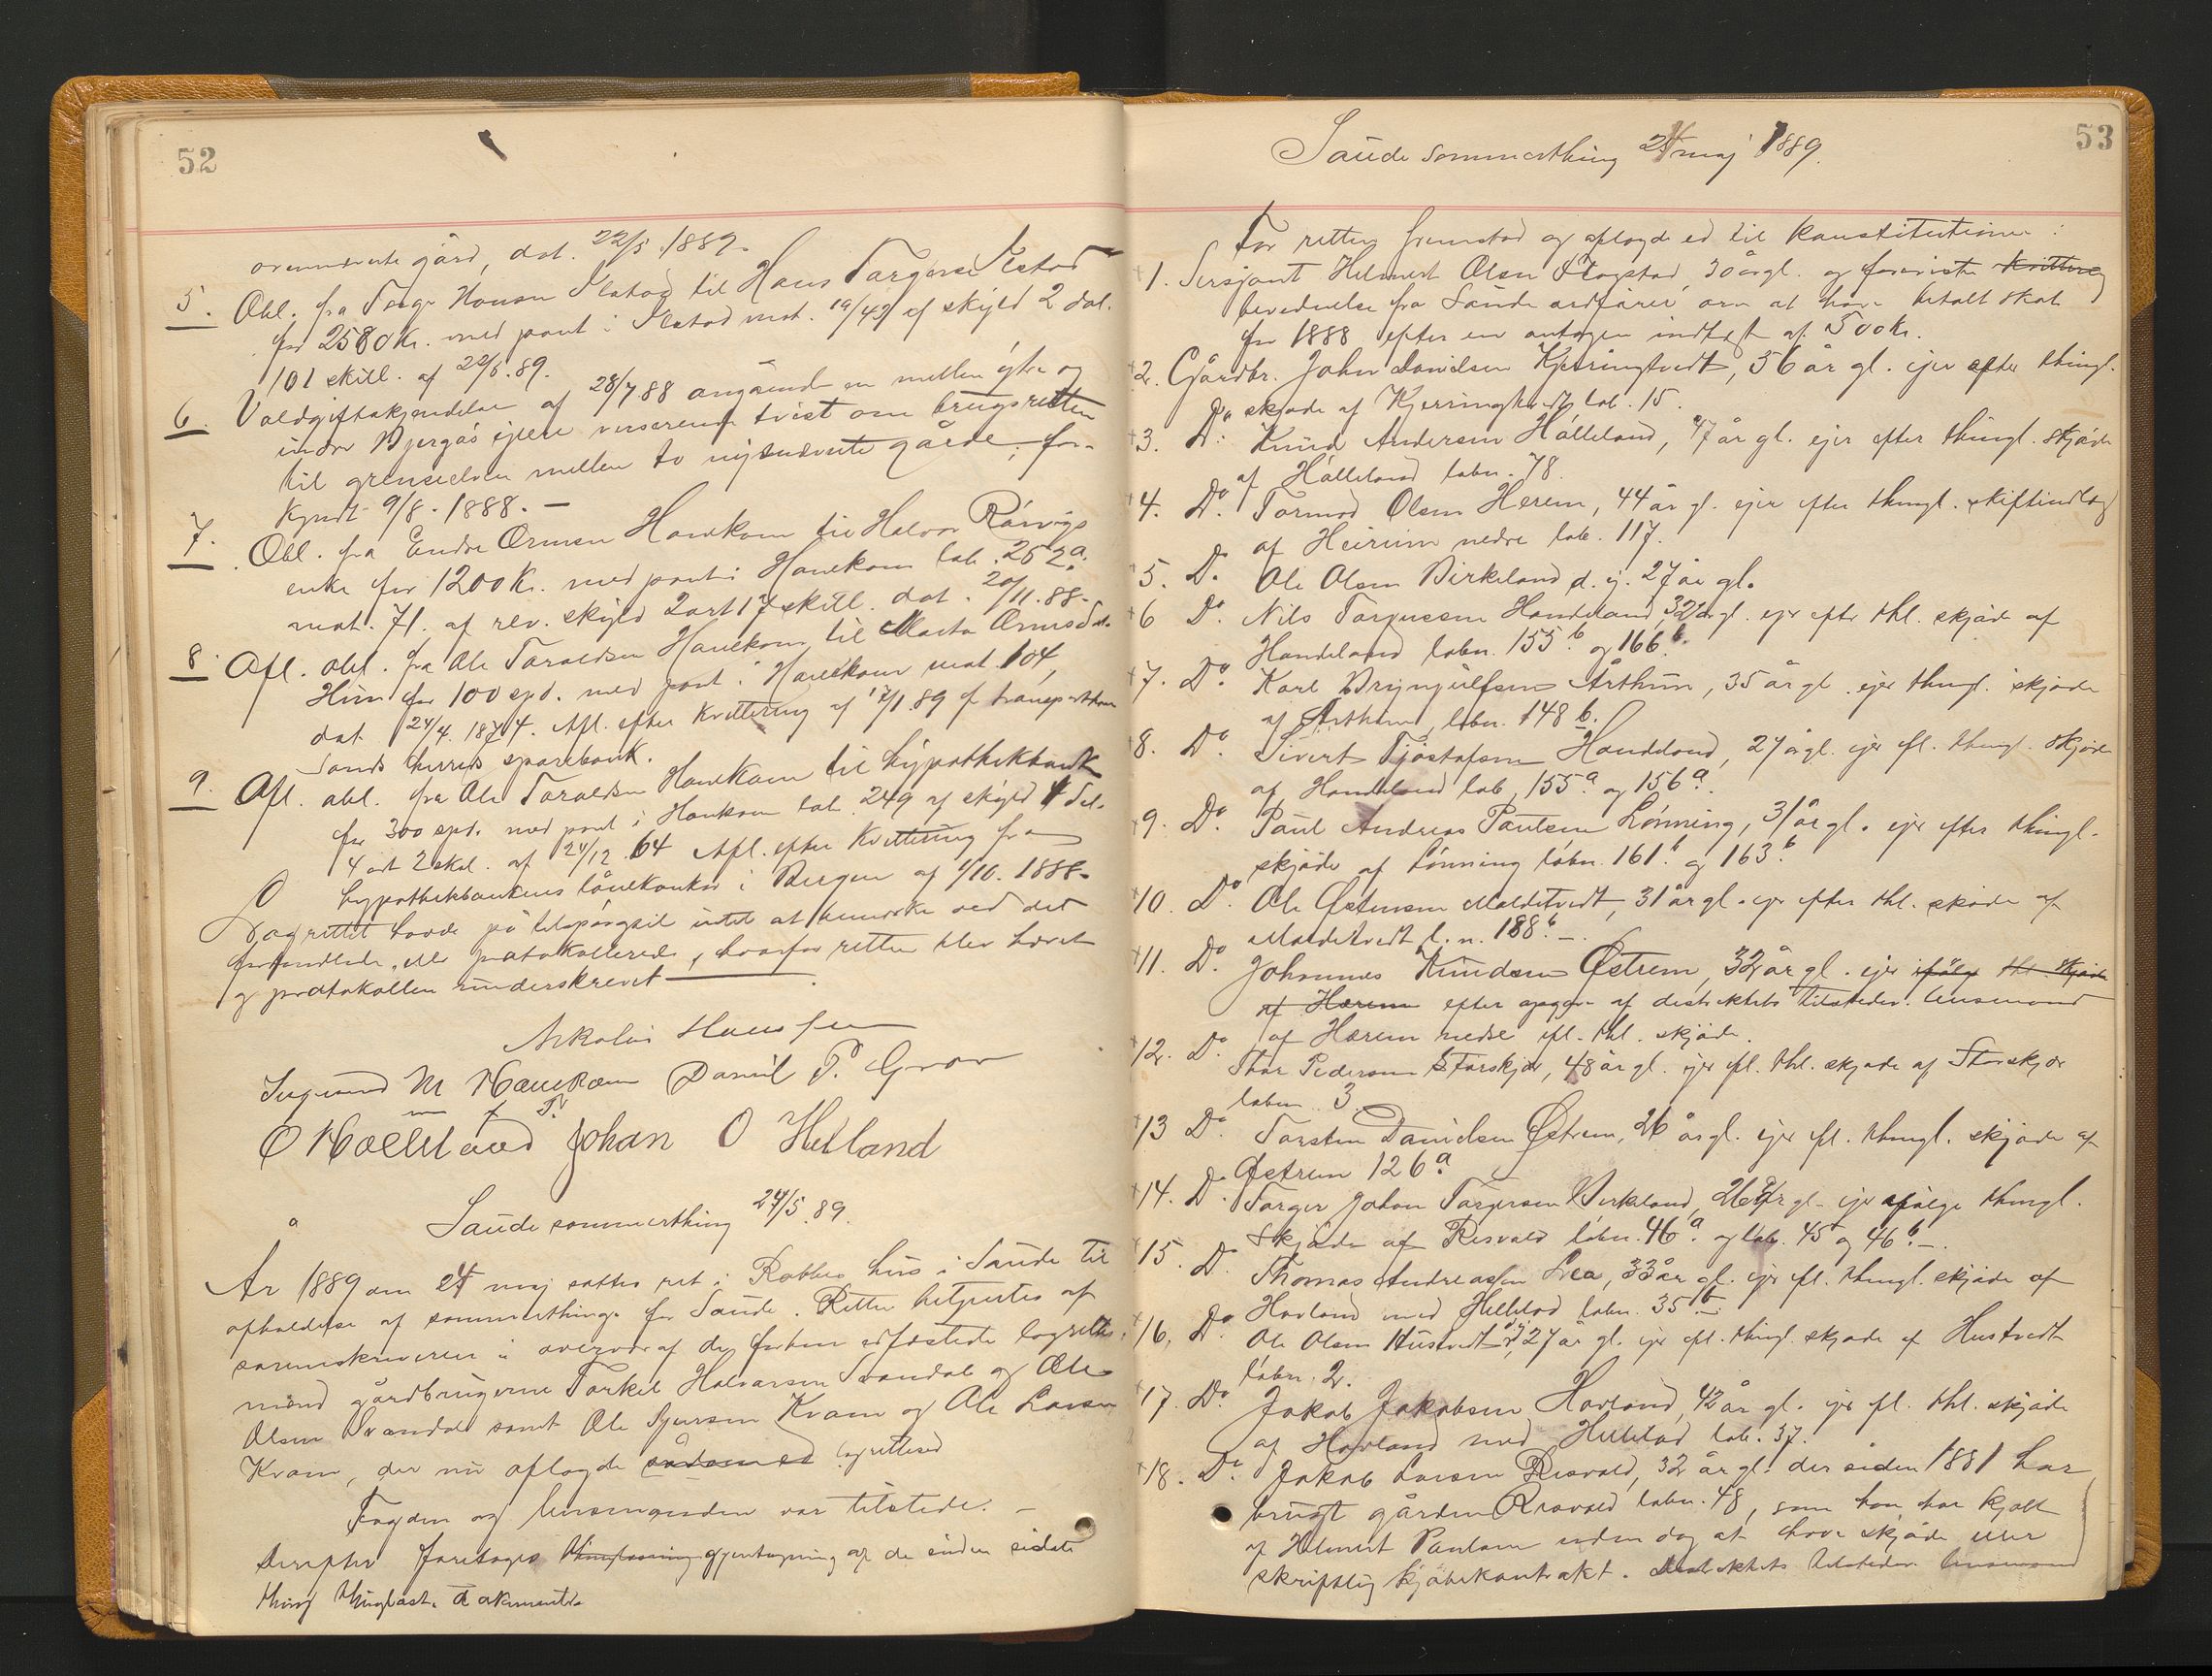 52
ovennævnte gård, dat. 22/5 1889.
5. Obl. fra Torger Hansen Ilstad til Hans Torgersen Ilstad
for 2580 Kr. med pant i Ilstad mat. 19/49 af skyld 2 dal.
101 skill. af 22/5.89.
6. Voldgiftskjendelse af 28/7 88 angående en mellem ytre og
indre Bjergås ejere verserende tvist om brugsretten
til grenseelven mellem to nysnævnte gårde, for-
kyndt 9/8.1888. —
7. Obl. fra Endre Ormsen Havekom til Halvor Rørvigs
enke for 1200 Kr. med pant i Havekom lab. 252a.
mat. 71. af rev. skyld 2 ort 17 skill. dat. 20/11.88.
8. Afl. obl. fra Ole Taraldsen Havekom til Marta Ormsd.
Hiim for 100 spd. med pant i Havekom mat. 104,
dat. 24/4 1874. Afl. efter kvittering af 12/1.89 f transporthav
Sands herreds sparebank.
9. Afl. obl. fra Ole Taraldsen Havekom til hypothekbank
for 300 spd. med pant i Havkom lab 249 af skyld 1 dal.
4 ort 2 skil. af 24/12.64 Afl. efter kvittering fra
hypothekbankens lånekontor i Bergen af 1/10.1888.
Lagrettet havde på tilspørgsel intet at bemærke ved det
forhandlede eller protokollerede, hvorfor retten blev hævet
og protokollen underskrevet
Nikolai Hansen
Sigmund M Havekom Daniel P. Grov
m f P.
O Hoelland Johan O Helland
Saude sommerthing 24/5.89.
År 1889 den 24 maj sattes ret i Rabbes hus i Saude til
afholdelse af sommerthinge for Saude. Retten betjentes af
sorenskriveren i overvær af de forhen edfæstede lagrettes-
mænd gårdbrugerne Torkel Halvorsen Svandal og Ole
Olsen Svandal samt Ole Sjursen Kvam og Ole Larsen
Kvam, der nu aflagde sådan ed lagretteed
Fogden og lensmanden var tilstede. —
Derefter foretoges thinglæsning gjentagning af de siden sidste
thing thinglæste dokumenter
Saude sommerthing 24 maj 1889.
53
For retten fremstod og aflagde ed til konstitutionen:
1. Sersjant Helmert Olsen Fløgstad, 30 år gl. og foreviste kvittering
bevidnelse fra Saude ordfører om at have betalt skat
for 1888 efter en antagen indtægt af 500 Kr.
2. Gårdbr. John Danielsen Kjerringtvedt, 56 år gl. ejer efter thingl.
skjøde af Kjerringtvedt lab. 15.
3. Do. Knud Andersen Hålleland, 47 år gl. ejer efter thingl. skjøde
af Hålleland labn. 78.
4. Do. Tormod Olsen Herem, 44 år gl. ejer efter thingl. skiftindlæg
af Heirim nedre lab. 117.
5. Do Ole Olsen Birkeland d. y. 27 år gl.
6 Do. Nils Torgersen Handeland, 32 år gl. ejer efter thl. skjøde af
Handeland labn. 155b og 166b.
7. Do. Karl Brynjulfsen Årthun, 35 år gl. ejer thingl. skjøde
af Årthun, labn. 148 b.
8. Do Sivert Tjøstofsen Handeland, 27 år gl. ejer efl. thingl. skjøde
af Handeland lab. 155a og 156a.
9. Do. Paul Andreas Paulsen Lønning, 31 år gl. ejer efter thingl.
skjøde af Lønning labn. 161b. og 163b.
10. Do Ole Østensen Maldetvedt, 31 år gl. ejer efter thl. skjøde af
Maldetvedt l. n. 188b. —
11. Do. Johannes Knudsen Østrem, 32 år gl. ejer ifølge thl. skjøde
af Hærem efter opgave af distriktets tilstedev. lensmand
af Hærem nedre efl. thl. skjøde.
12. Do. Thor Pedersen Storskjær, 48 år gl. ejer efl. thl. skjøde af Storskjær
labn. 3.
13 Do. Torsten Danielsen Østrem, 26 år gl. ejer efl. thingl. skjøde af
Østrem 126a.
14. Do. Torger Johan Torgersen Birkeland, 26 år gl. ejer ifølge thingl.
skjøde af Risvold labn. 46a. og lab. 45 og 46b. —
15. D. Thomas Andreassen Lrea, 33 år gl. ejer efl. thingl. skjøde af
Hovland med Hellelad labn. 35b.
16. Do. Ole Olsen Hustvedt d.y. 27 år gl. ejer efl. thingl. skjøde af Hustvedt
labn. 2.
17. Do. Jakob Jakobsen Hovland, 42 år gl. ejer efl. thl. skjøde
af Hovland med Hellelad lab. 37.
18. Do. Jakob Larsen Risvold, 32 år gl. der siden 1881 har
brugt gården Risvold labn. 48, som han har kjøbt
af Helmert Paulsen uden dog at have skjøde eller
skriftlig kjøbekontrakt. Distriktets tilstedev. lensmand